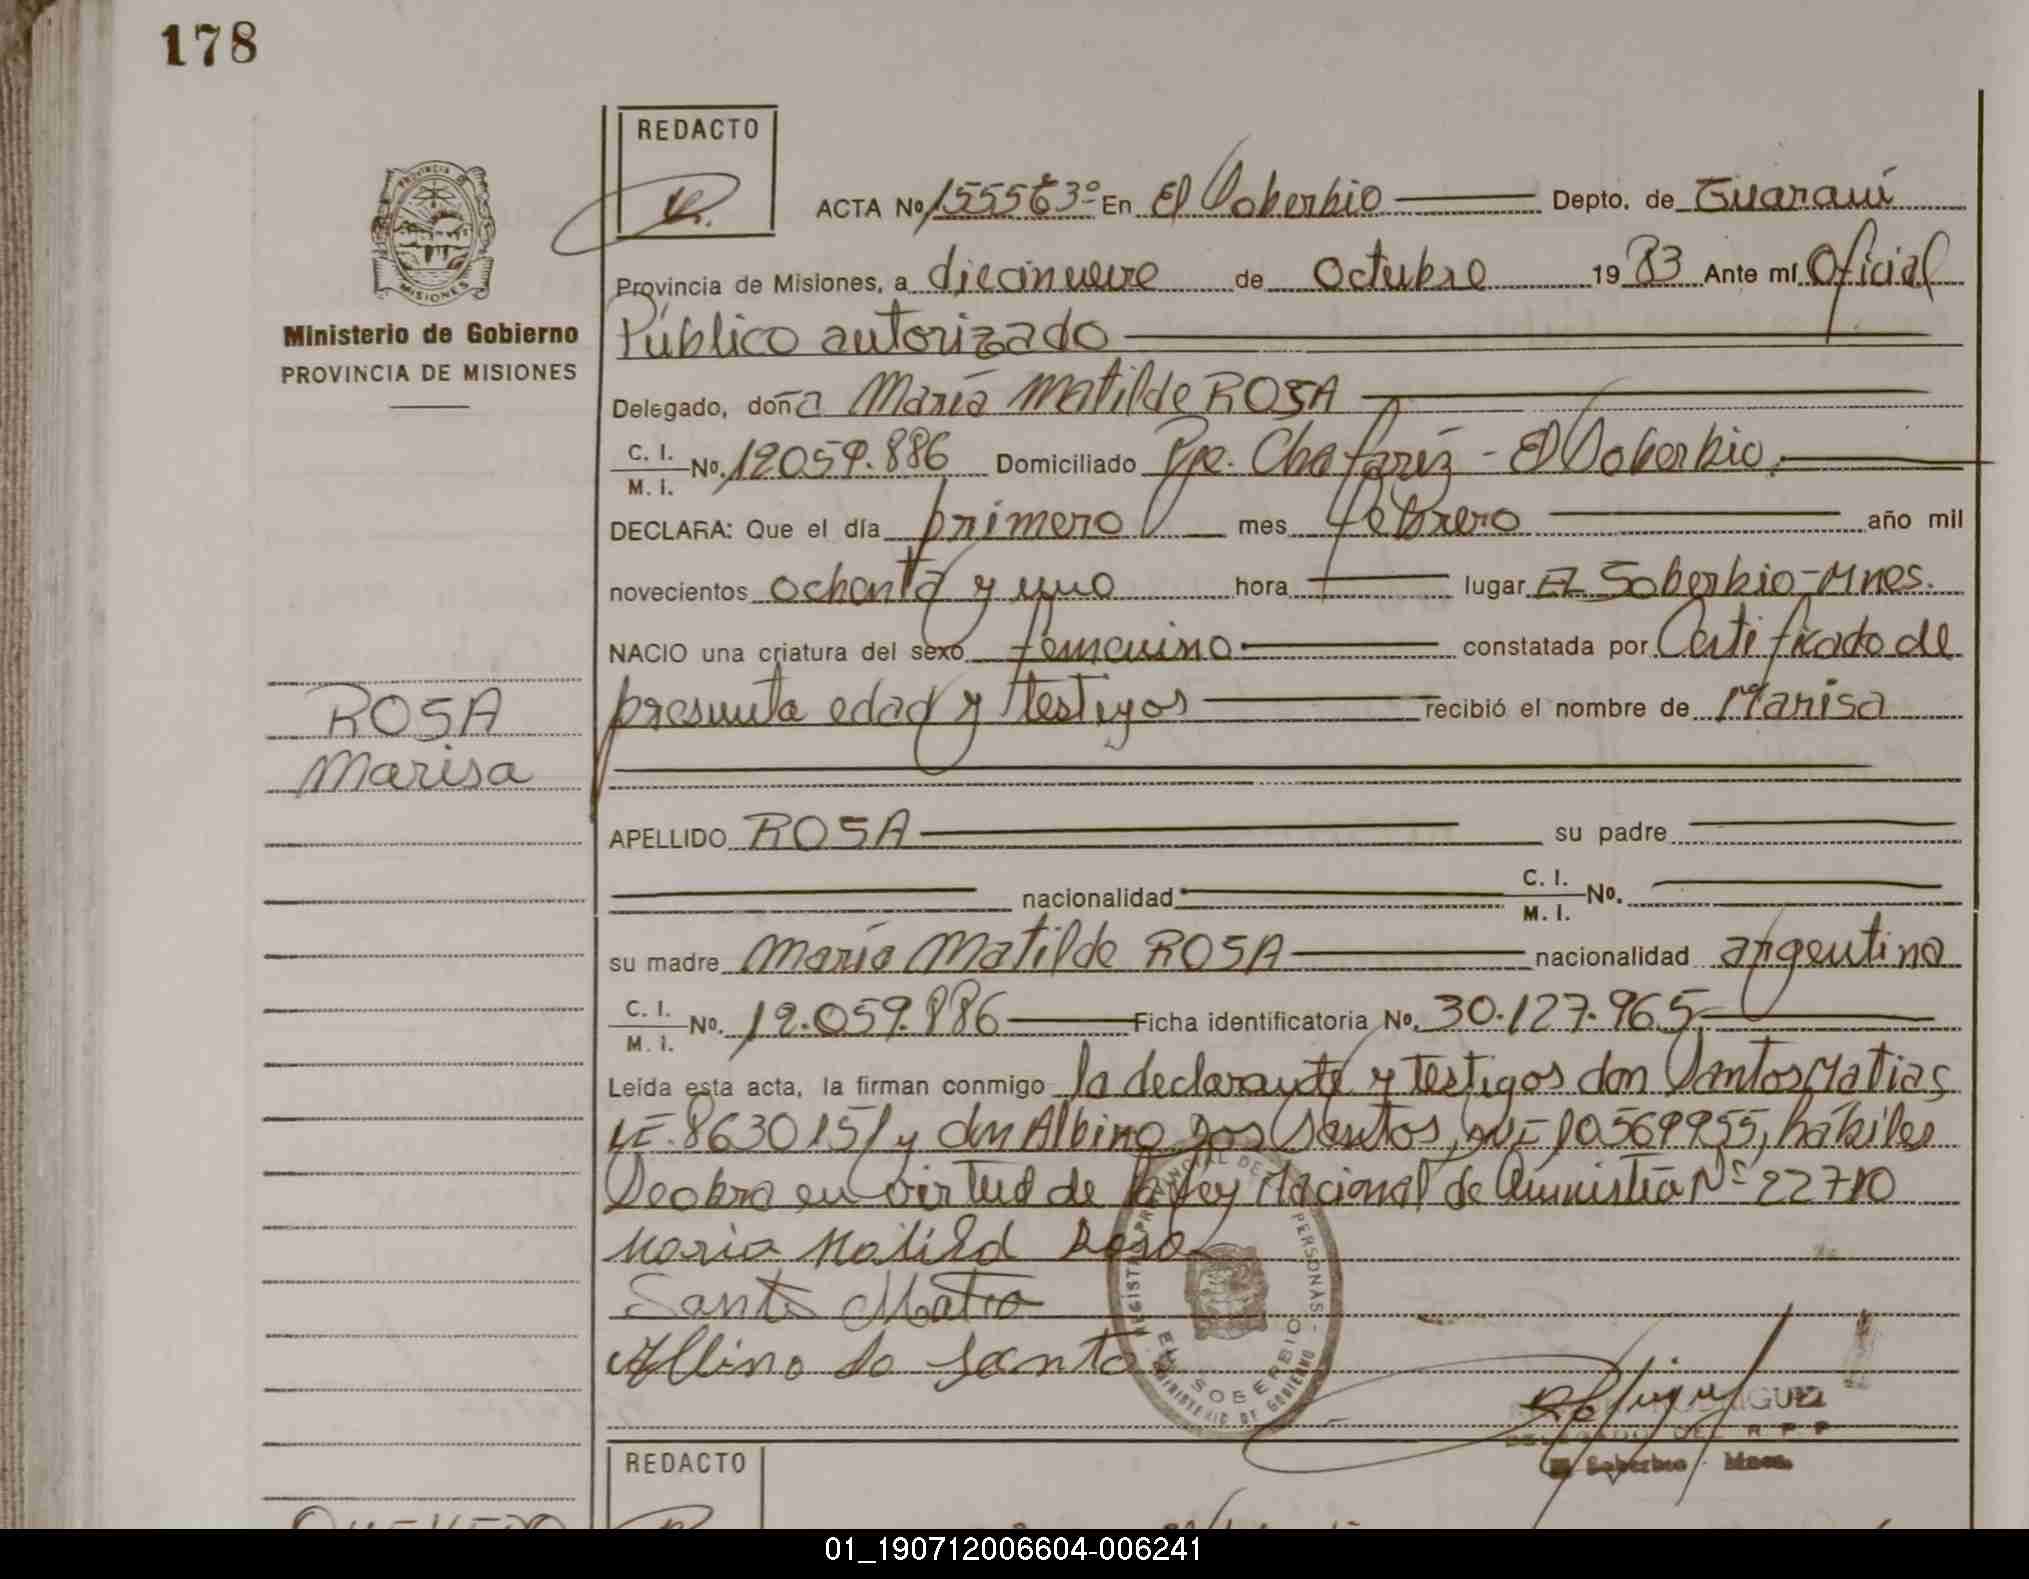 178
REDACTO
ACTA Nº 155563º En El Soberbio Depto. de Guaraní
Provincia de Misiones, a diecinueve de Octubre 1983 Ante mí Oficial
Público autorizado
Ministerio de Gobierno
PROVINCIA DE MISIONES
Delegado, doña María Matilde ROSA
C. I. M. I. No. 12059.886 Domiciliado Pje. Chafariz - El Soberbio.
DECLARA: Que el día primero mes febrero año mil
novecientos ochenta y uno hora lugar El Soberbio-Mnes.
NACIO una criatura del sexo femenino constatada por Certificado de
presunta edad y testigos recibió el nombre de Marisa
ROSA
Marisa
APELLIDO ROSA su padre
nacionalidad C. I. M. I. No.
su madre María Matilde ROSA nacionalidad argentina
C. I. M. I. No. 12.059.886 Ficha identificatoria No. 30.127.965
Leída esta acta, la firman conmigo la declarante y testigos don Santos Matias
LE. 8630151 y don Albino dos Santos, 10569955, hábiles
Seobra en virtud de la Ley Nacional de Amnistia Nº 22710
Maria Matild Rosa
Santo
Albino do Santo
EL SOBERBIO
MINISTERIO DE GOBIERNO
El Soberbio - Mnes.
REDACTO
01_190712006604-006241